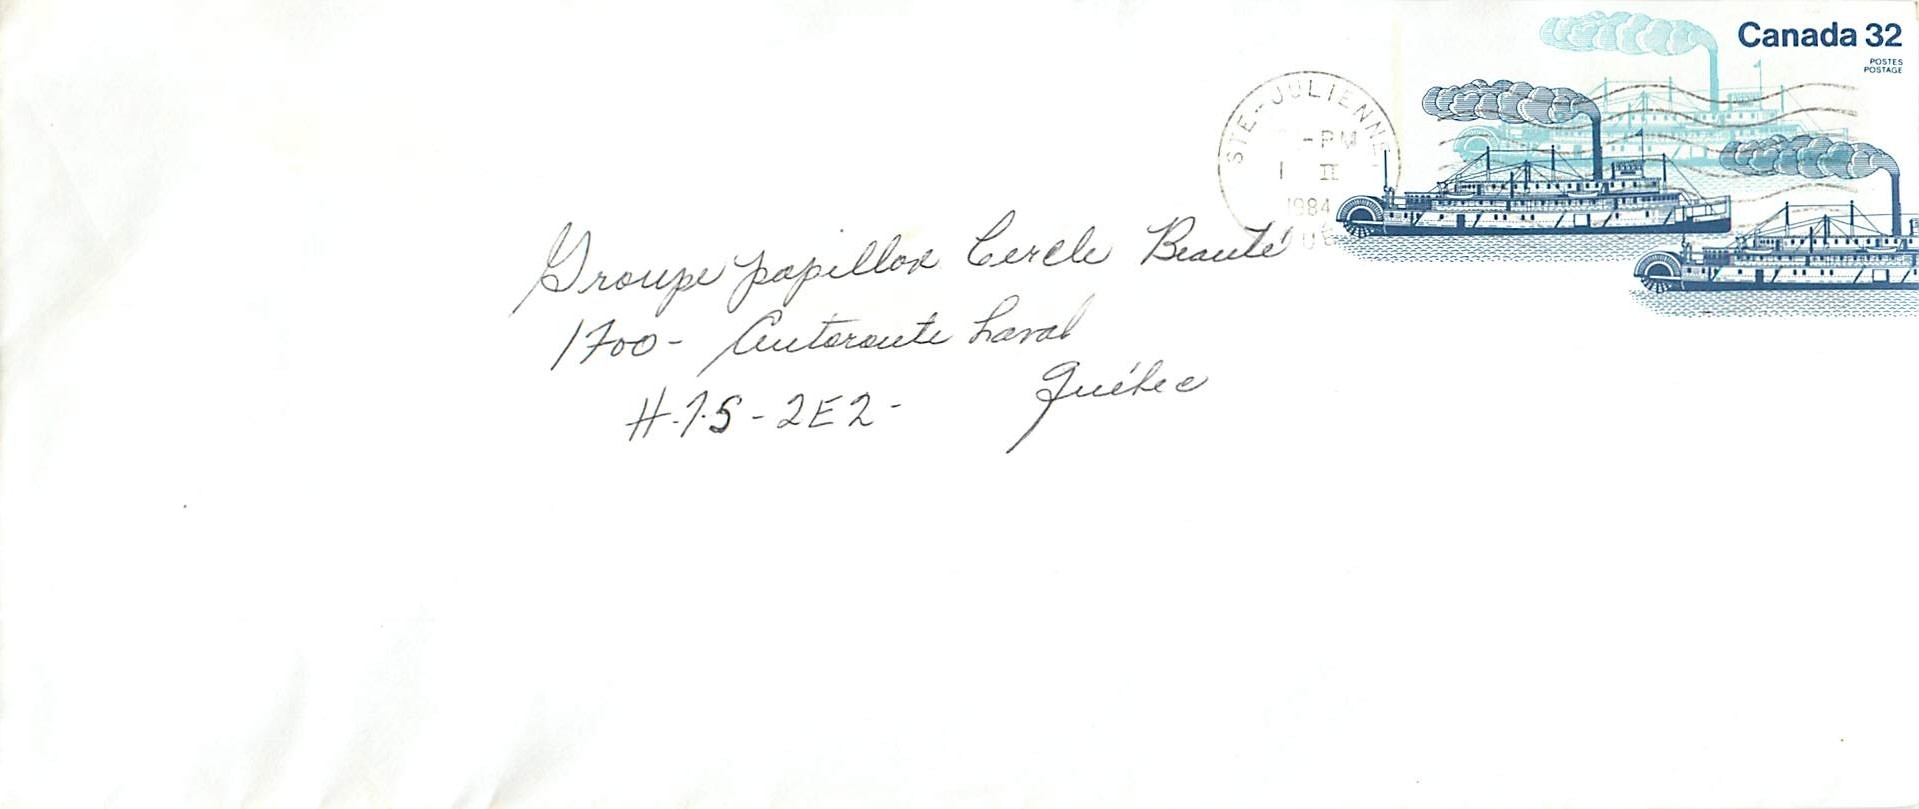 Canada 32
POSTES
POSTAGE
STE-JULIENNE
-PM
1 II
1984
Groupe papillon Cercle Beauté
1700- Autoroute Laval
Québec
H.7.S-2E2-